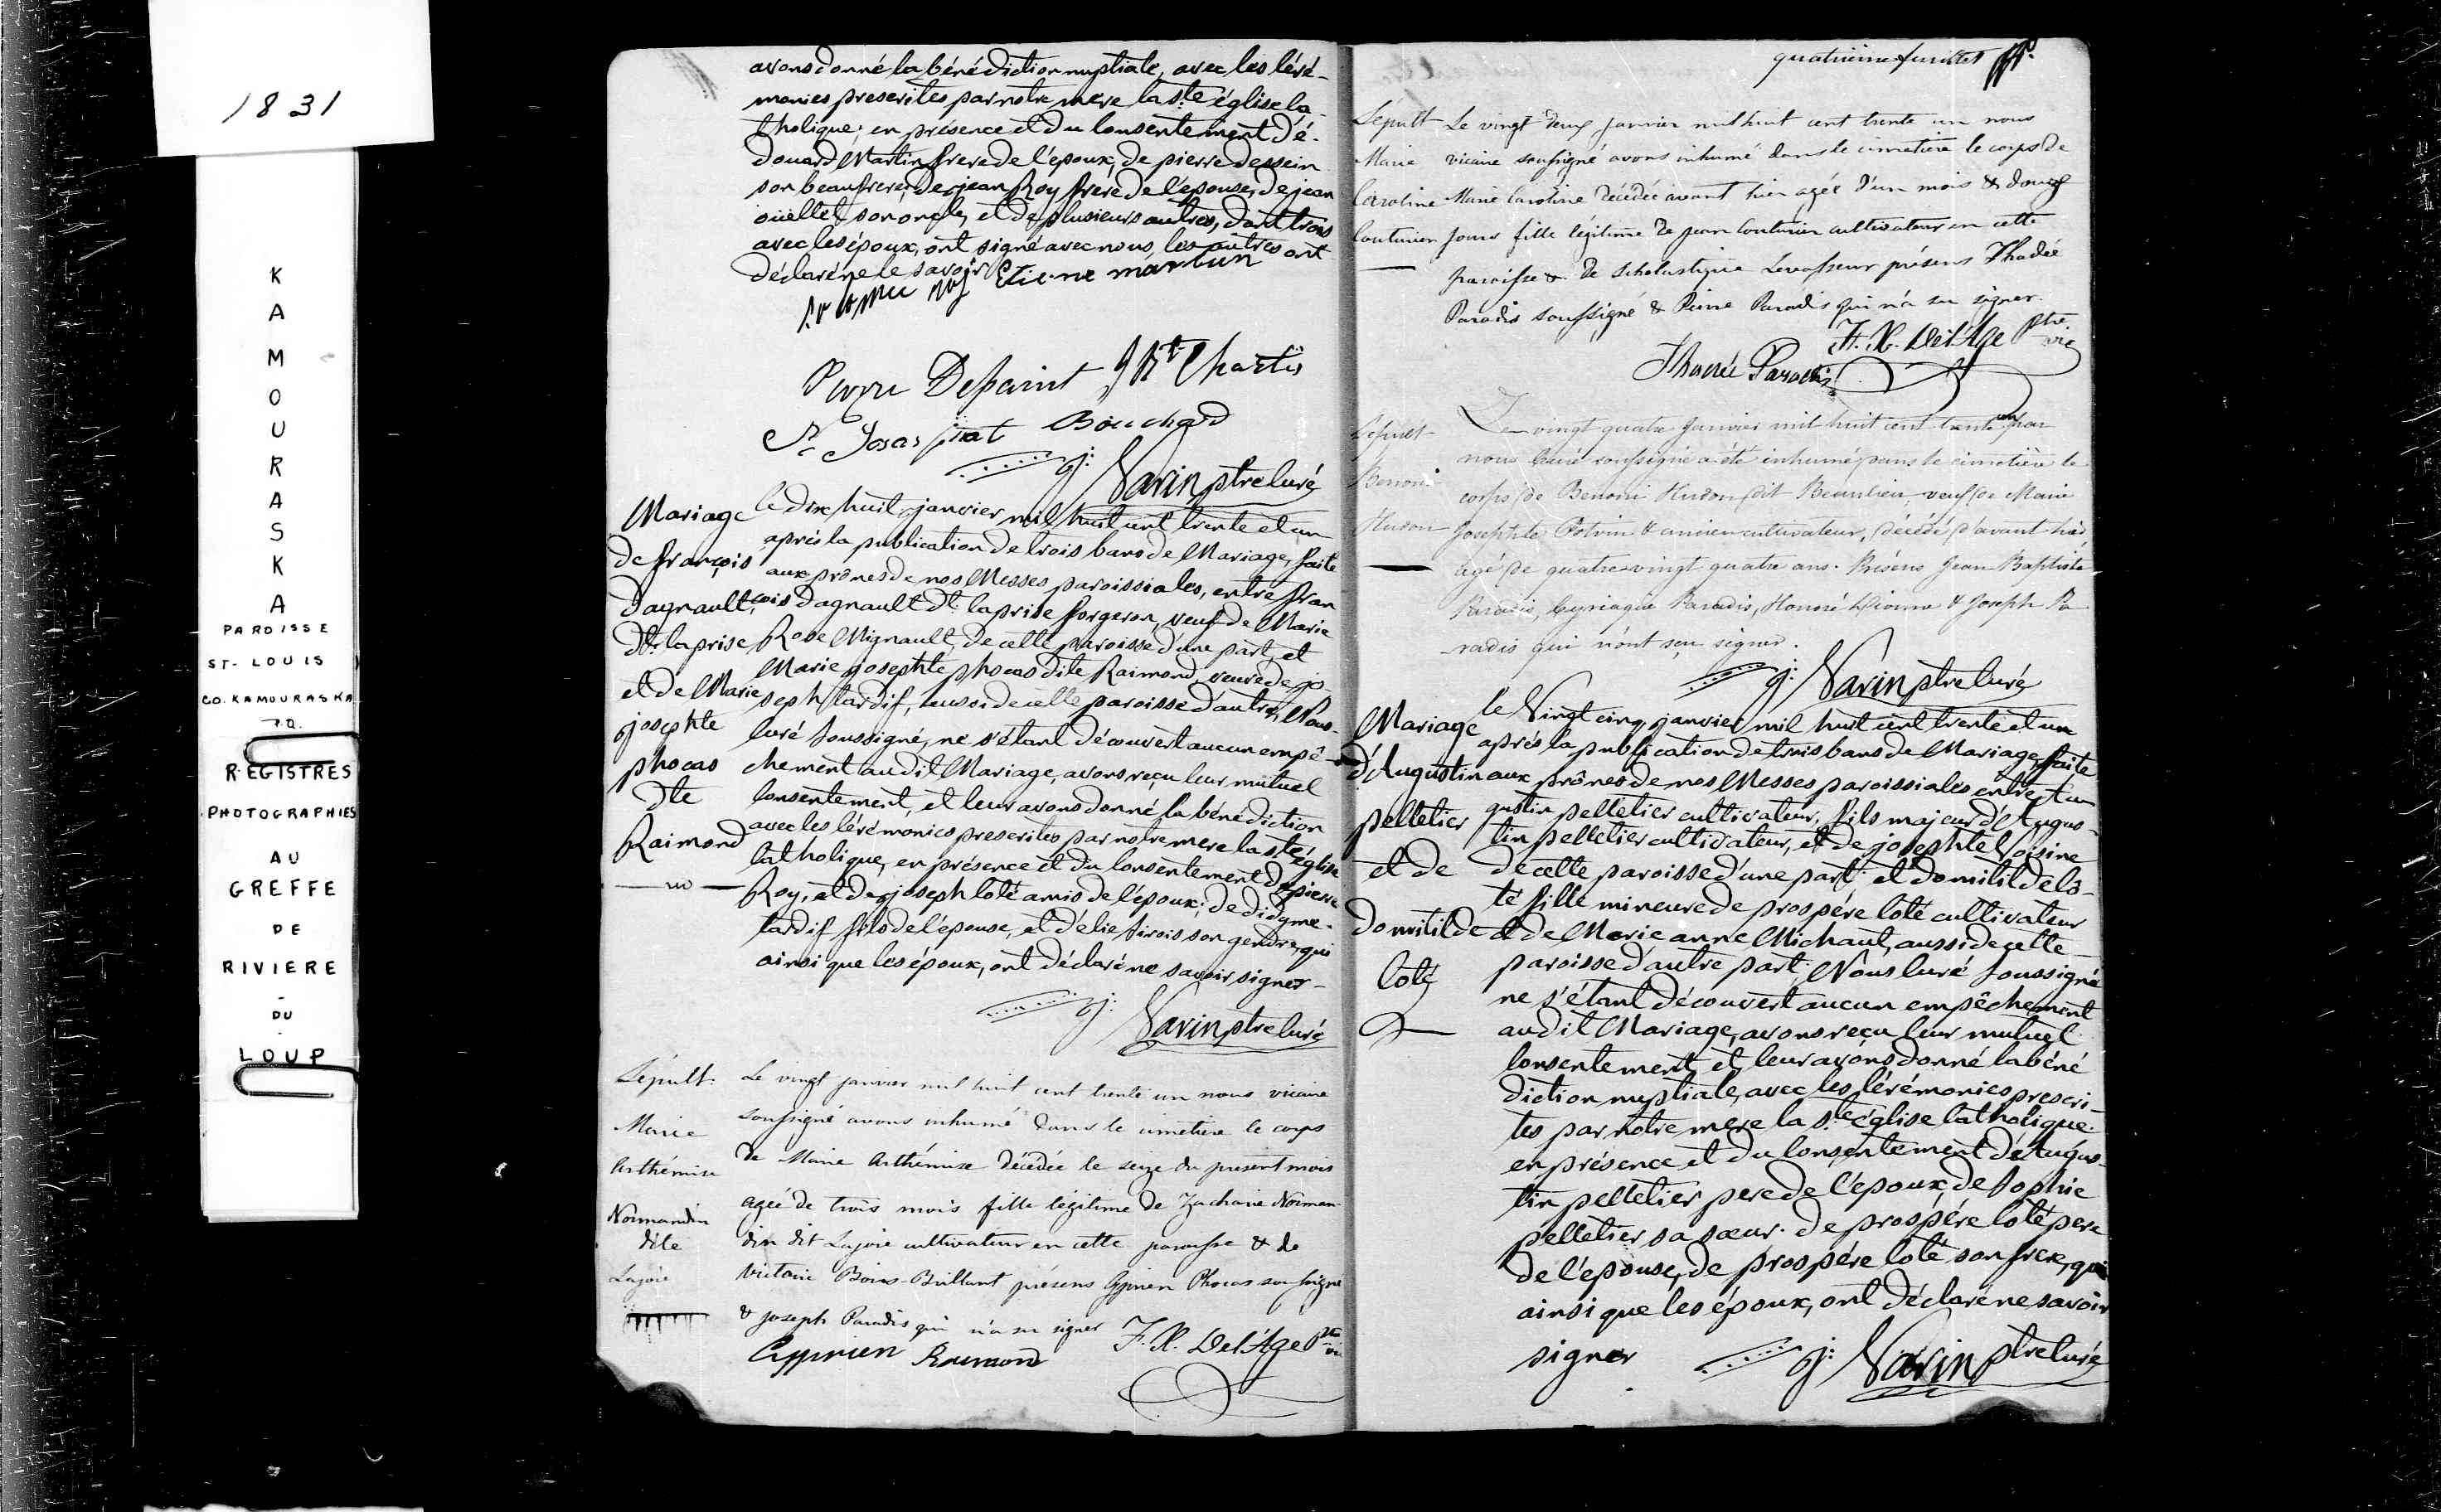 1831
KAMOURASKA
PAROISSE
ST- LOUIS
CO. KAMOURASKA
P.Q.
REGISTRES
PHOTOGRAPHIES
AU
GREFFE
DE
RIVIERE
-
DU
-
LOUP
avons donné la bénédiction nuptiale, avec les céré-
monies prescrites par notre mere la ste église ca-
tholique; en présence et du consentement d'é-
douard Martin frere de l'époux, de pierre dessein
son beaufrere, de jean Roy frere de l'épouse, de jean
oüellet son oncle, et de plusieurs autres, dont trois
avec les époux, ont signé avec nous, les autres ont
déclaré ne le savoir Etienne martin
Roy
Pierre Depaint J Bt Chartis
St Josaphat Bouchard
J: Varin ptre Curé
Mariage
de françois
dagnault
dt laprise
et de Marie
josephte
phocas
dte
Raimond
le dix huit janvier mil huit cent trente et un
après la publication de trois bans de Mariage, faite
aux prônes de nos Messes paroissiales, entre fran
çois dagnault dt laprise forgeron, veuf de Marie
Rose Mignault, de cette paroisse d'une part, et
Marie josephte phocas dite Raimond, veuve de jo
seph tardif, aussi de cette paroisse d'autre, Nous
Curé Soussigné, ne s'étant découvert aucun empê-
chement au dit Mariage, avons reçu leur mütuel
Consentement, et leur avons donné la bénédiction
avec les Cérémonies prescrites par notre mere la ste église
Catholique, en présence et du Consentement de pierre
Roy, et de joseph Coté amis de l'époux; de didyme
tardif fils de l'épouse, et d'élie Sirois son gendre, qui
ainsi que les époux, ont déclaré ne savoir signer-
J: Varin ptre Curé
Sépult.
Marie
Arthémise
Normandin
dite
Lajoie
Le vingt janvier mil huit cent trente un nous vicaire
soussigné avons inhumé dans le cimetiere le corps
de Marie Arthémise décédée le seize du present mois
agée de trois mois fille légitime de Zacharie Norman
din dit Lajoie cultivateur en cette paroisse & de
Victoire Boins-Brillant présens Cyprien Phocas soussigné
& joseph Paradis qui n'a su signer
Cyprien Raimond F. X. Del'Age Ptre vic
quatrième feuillet
Sépult
Marie
Caroline
Couturier
Le vingt deux janvier mil huit cent trente un nous
vicaire soussigné avons inhumé dans le cimetiere le corps de
Marie Caroline décédée avant hier agée d'un mois & douze
jours fille légitime de jean Couturier cultivateur en cette
paroisse & de Scholastique Levasseur présens Thadée
Paradis soussigné & Pierre Paradis qui n'a su signer.
F. X. Del'Age Ptre vic
Thadée Paradis
Sépult
Benoni
Hudon
Le vingt quatre Janvier mil huit cent trente un par
nous Curé soussigné a été inhumé dans le cimetière le
corps de Benoni Hudon dit Beaulieu, veuf de Marie
Josephte Potvin & ancien cultivateur, décédé d'avant hier,
agé de quatre-vingt quatre ans. Présens Jean Baptiste
Paradis, Cyriaque Paradis, Honoré Dionne & Joseph Pa
radis qui n'ont seu signer.
J: Varin ptre Curé
Mariage
d'Augustin
pelletier
et de
domitilde
Coté
le Vingt cinq janvier mil huit cent trente et un
après la publication de trois bans de Mariage, faite
aux prônes de nos Messes paroissiales entre Au
gustin pelletier cultivateur, fils majeur d'Augus-
tin pelletier cultivateur, et de josephte Voisine
de cette paroisse d'une part; et domitilde Co-
té fille mineure de prospére Coté cultivateur
et de Marie anne Michaut, aussi de cette
paroisse d'autre part, Nous Curé Soussigné
ne s'étant découvert aucun empêchement
au dit Mariage, avons reçu leur mutuel
Consentement, et leur avons donné la béné
diction nuptiale, avec les Cérémonies prescri-
tes par notre mere la S.te église Catholique.
en présence et du Consentement d'Augus-
tin pelletier pere de l'époux, de Sophie
pelletier sa sœur. de prospére Coté pere
de l'épouse, de prospére Coté son frere, qui
ainsi que les époux, ont déclaré ne savoir
signer J: Varin ptre Curé